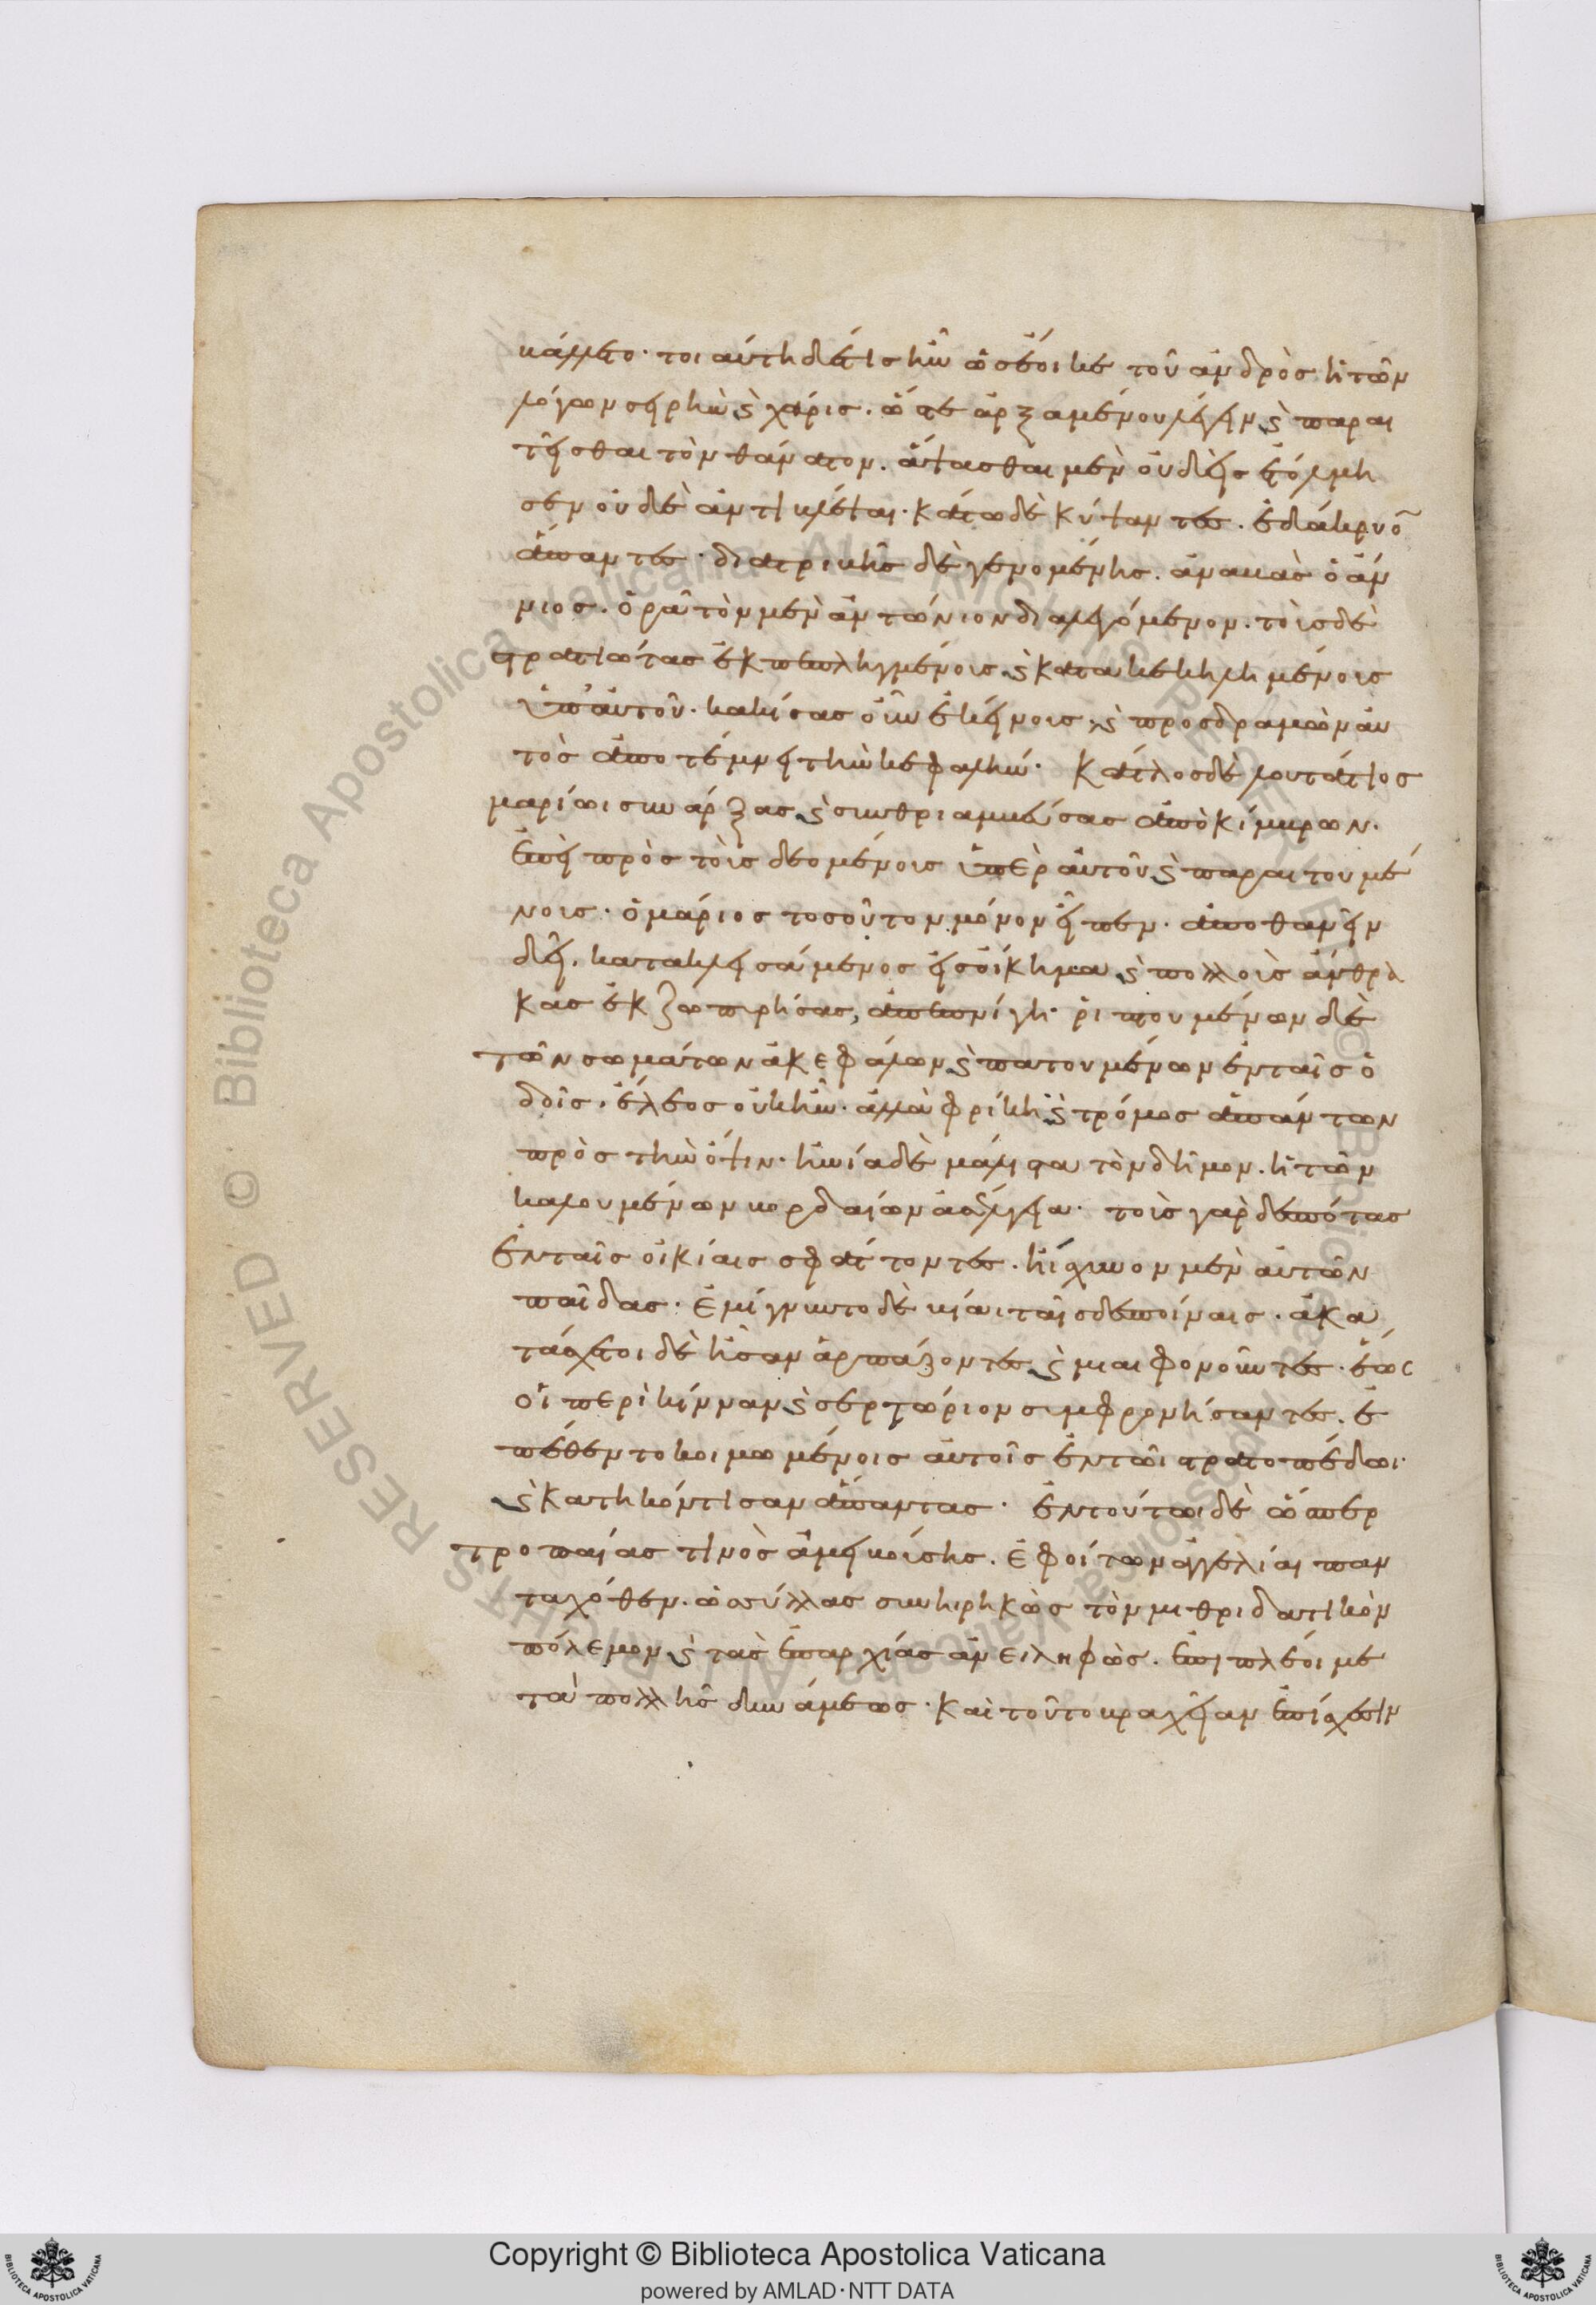 βάλλετο· τοιαύτη δέ τις ἦν ὡς ἔοικε τοῦ ἀνδρὸς ἡ τῶν
λόγων σειρὴν ϗ χάρις. ὥστε ἀρξαμένου λέγειν ϗ παραι
τεῖσθαι τὸν θάνατον. ἅψασθαι μὲν οὐδεὶς ἐτόλμη
σεν οὐδὲ ἀντιβλέψαι· κάτω δὲ κύψαντες. ἐδάκρυο̅
ἅπαντες· διατριβῆς δὲ γενομένης. ἀναβὰς ὁ ἄν
νιος. ὁρᾶ τὸν μὲν ἀντώνιον διαλεγόμενον. τοὺς δὲ
στρατιώτας ἐκπεπληγμένους ϗ κατακεκηλημένους
ὑπ' αὐτοῦ· κακίσας οὖν ἐκείνους ϗ προσδραμὼν αὐ
τὸς ἀποτέμνει τὴν κεφαλήν· Κάτλος δὲ λουτάτιος
μαρίωι συνάρξας ϗ συνθριαμβεύσας ἀπὸ κίμβρων.
ἐπεὶ πρὸς τοὺς δεομένους ὑπὲρ αὐτοῦ ϗ παραιτουμέ
νους· ὁ μάριος τοσοῦτον μόνον εἶπεν· ἀποθανεῖν
δεῖ. κατακλεισάμενος εἰς οἴκημα ϗ πολλοὺς ἄνθρα
κας ἐκζωπυρήσας, ἀπεπνίγη· ῥιπτουμένων δὲ
τῶν σωμάτων ἀκεφάλων ϗ πατουμένων ἐν ταῖς ὁ
δοῖς. ἔλεος οὐκ ἦν· ἀλλὰ φρίκη ϗ τρόμος ἁπάντων
πρὸς τὴν ὄψιν· ἠνία δὲ μάλιστα τὸν δῆμον. ἡ τῶν
καλουμένων βαρδαίων ἀσέλγεια· τοὺς γὰρ δεσπότας
ἐν ταῖς οἰκίαις σφάττοντες. ἤισχυνον μὲν αὐτῶν
παῖδας. ἐμίγνυντο δὲ βίαι ταῖς δεσποίναις. ἀκα
τάσχετοι δὲ ἦσαν ἁρπάζοντες ϗ μιαιφονοῦντες. ἕως
οἱ περὶ κίνναν ϗ σερτώριον συμφρονήσαντες. ἐ
πέθεντο κοιμωμένοις αὐτοῖς ἐν τῶι στρατοπέδωι·
ϗ κατηκόντισαν ἅπαντας· ἐν τούτωι δὲ ὥσπερ
τροπαίας τινὸς ἀμειβούσης. ἐφοίτων ἀγγελίαι παν
ταχόθεν. ὡς σύλλας συνηιρηκὼς τὸν μιθριδατικὸν
πόλεμον ϗ τὰς ἐπαρχίας ἀνειληφὼς. ἐπιπλέοι με
τὰ πολλῆς δυνάμεως· καὶ τοῦτο βραχεῖαν ἐπίσχεσιν